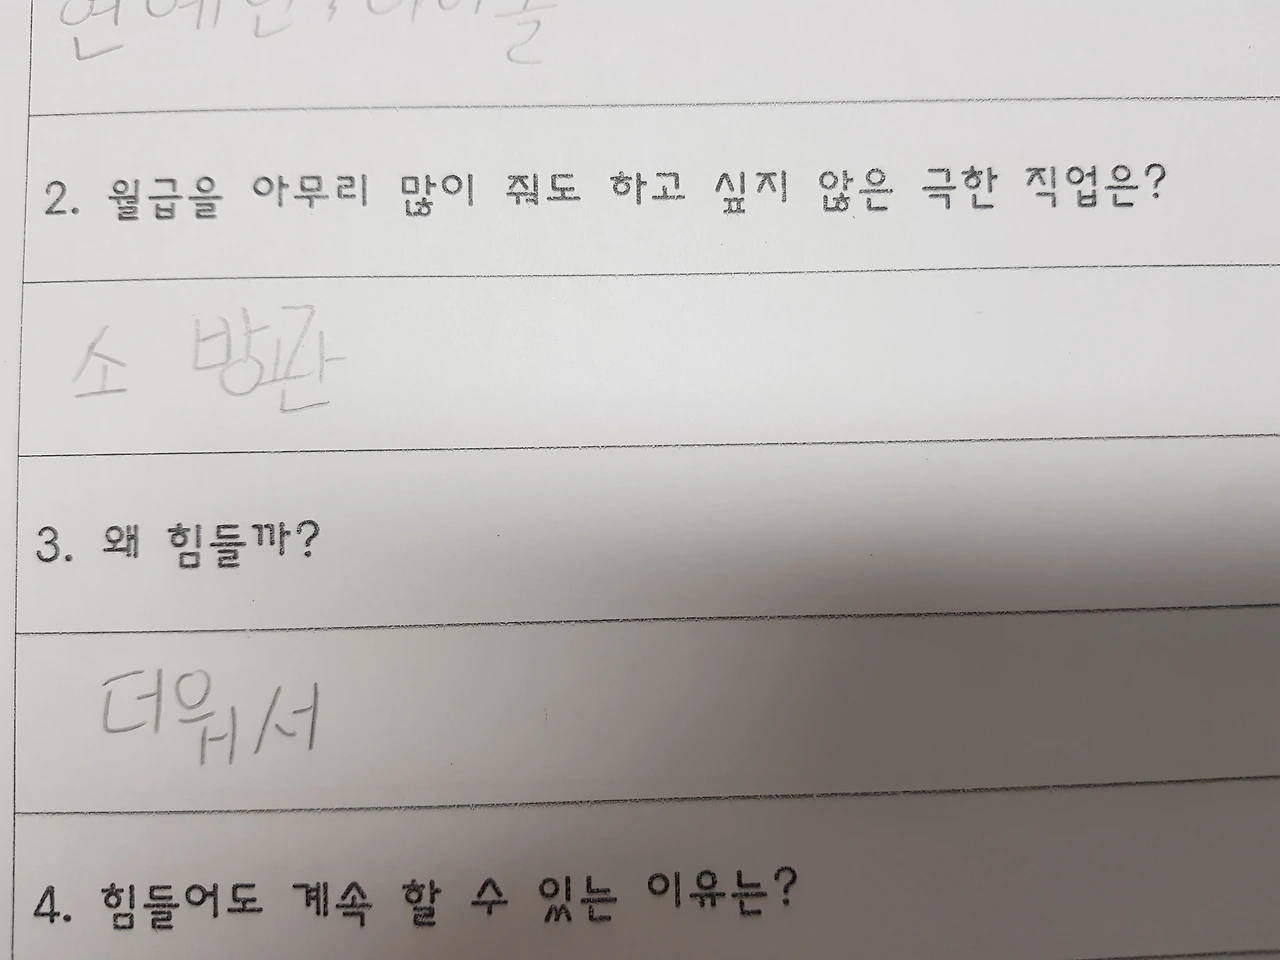 연예인, 아이돌
2. 월급을 아무리 많이 줘도 하고 싶지 않은 극한 직업은?
소 방관
3. 왜 힘들까?
더워서
4. 힘들어도 계속 할 수 있는 이유는?